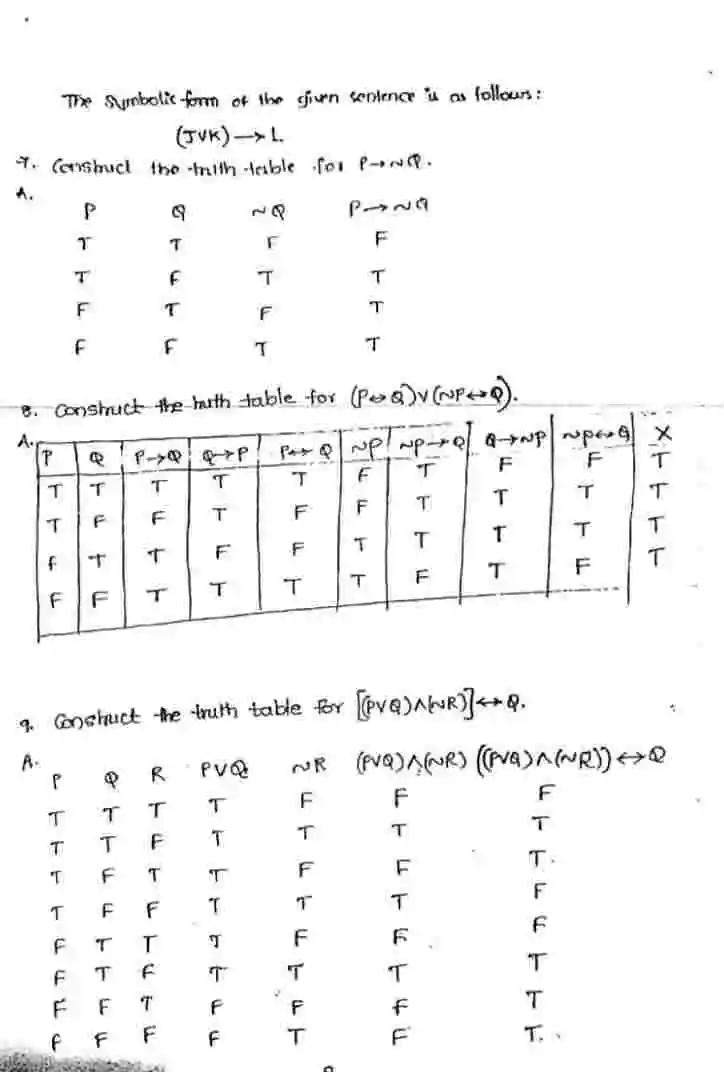 The Symbolic form of the given sentence is as follows:
(JVK) → L
7. Construct the truth table for P→~Q.
A.
P Q ~Q P→~Q
T T F F
T F T T
F T F T
F F T T
8. Construct the truth table for (P↔Q)∨(~P↔Q).
A.
P Q P→Q Q→P P↔Q ~P ~P→Q Q→~P ~P↔Q X
T T T T T F T F F T
T F F T F F T T T T
F T T F F T T T T T
F F T T T T F T F T
9. Construct the truth table for [(PVQ)∧(~R)]↔Q.
A.
P Q R PVQ ~R (PVQ)∧(~R) ((PVQ)∧(~R))↔Q
T T T T F F F
T T F T T T T
T F T T F F T.
T F F T T T F
F T T T F F F
F T F T T T T
F F T F F F T
F F F F T F T.